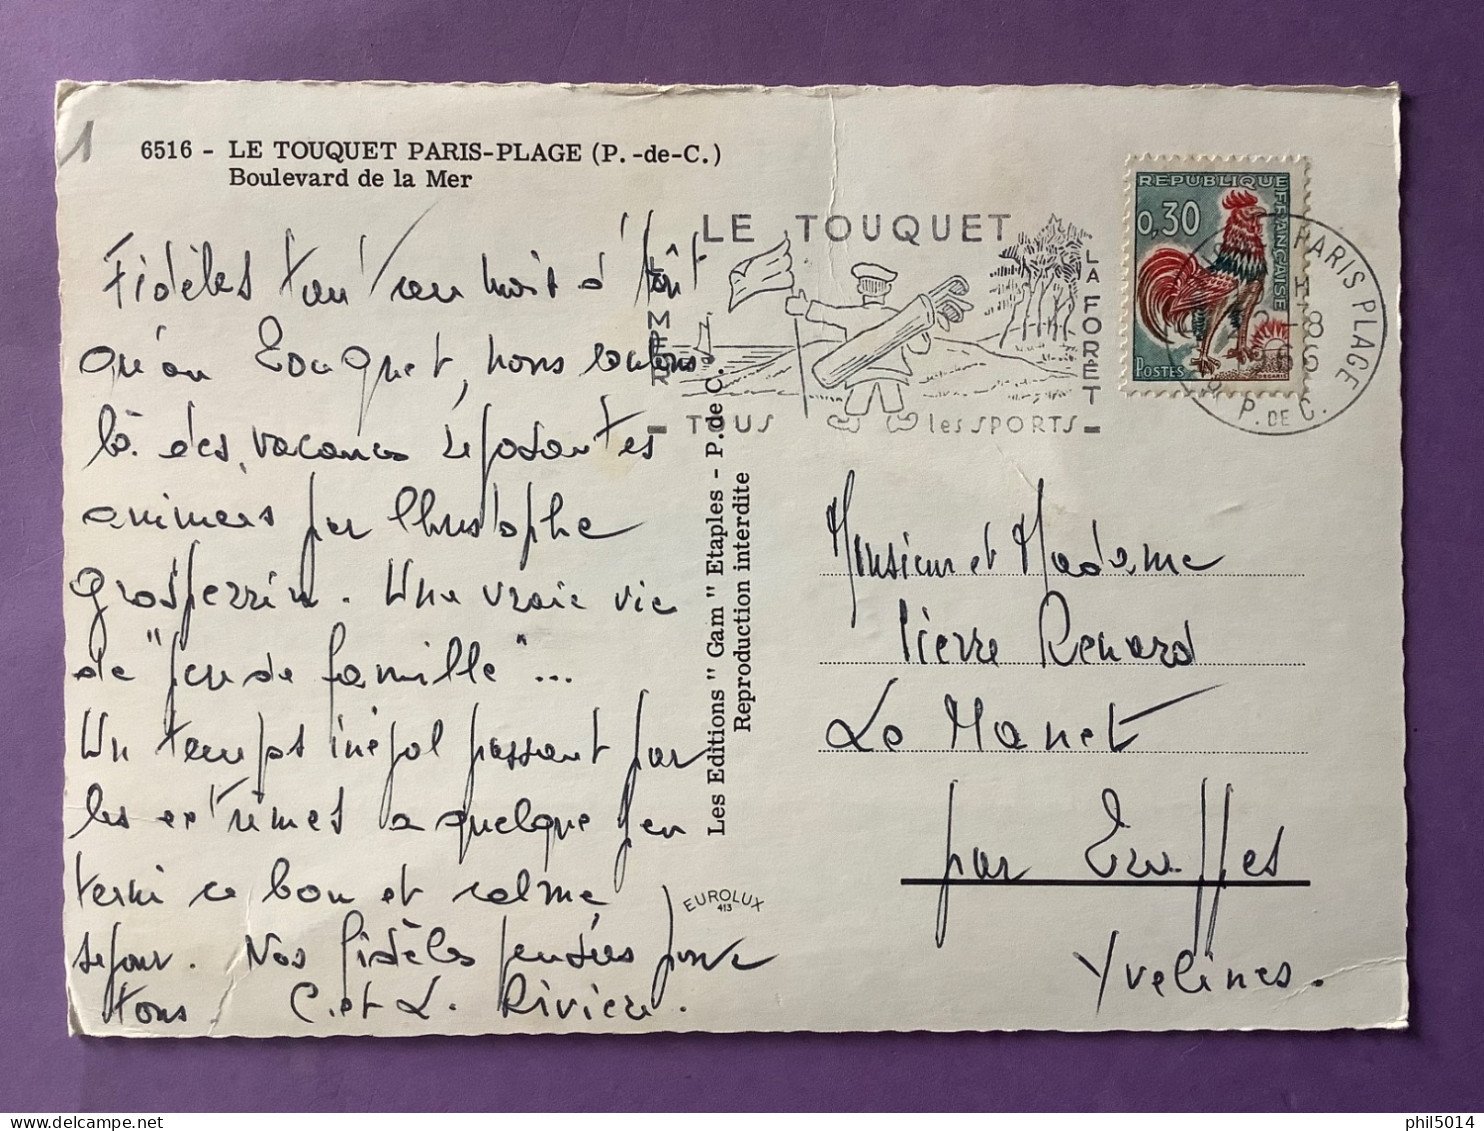 1
6516 - LE TOUQUET PARIS-PLAGE (P. -de-C.)
Boulevard de la Mer
Fidèles tant au mois d'Août
qu'au Touquet, nous coulons
là des vacances reposantes
animées par Christophe
Grosperrin. Une vraie vie
de "jeu de famille"...
Un temps inégal passant par
les extrêmes a quelque peu
terni ce bon et calme
séjour. Nos fidèles pensées pour
tous. C. et L. Rivière.
Les Editions "Gam" Etaples - P. de C.
Reproduction interdite
EUROLUX
413
LE TOUQUET
LA MER
LA FORET
TOUS les SPORTS
REPUBLIQUE FRANÇAISE
0,30
POSTES
DECARIS
PARIS PLAGE
H
2-8
1966
P. DE C.
Monsieur et Madame
Pierre Renard
Le Manet
par
Yvelines.
phil5014